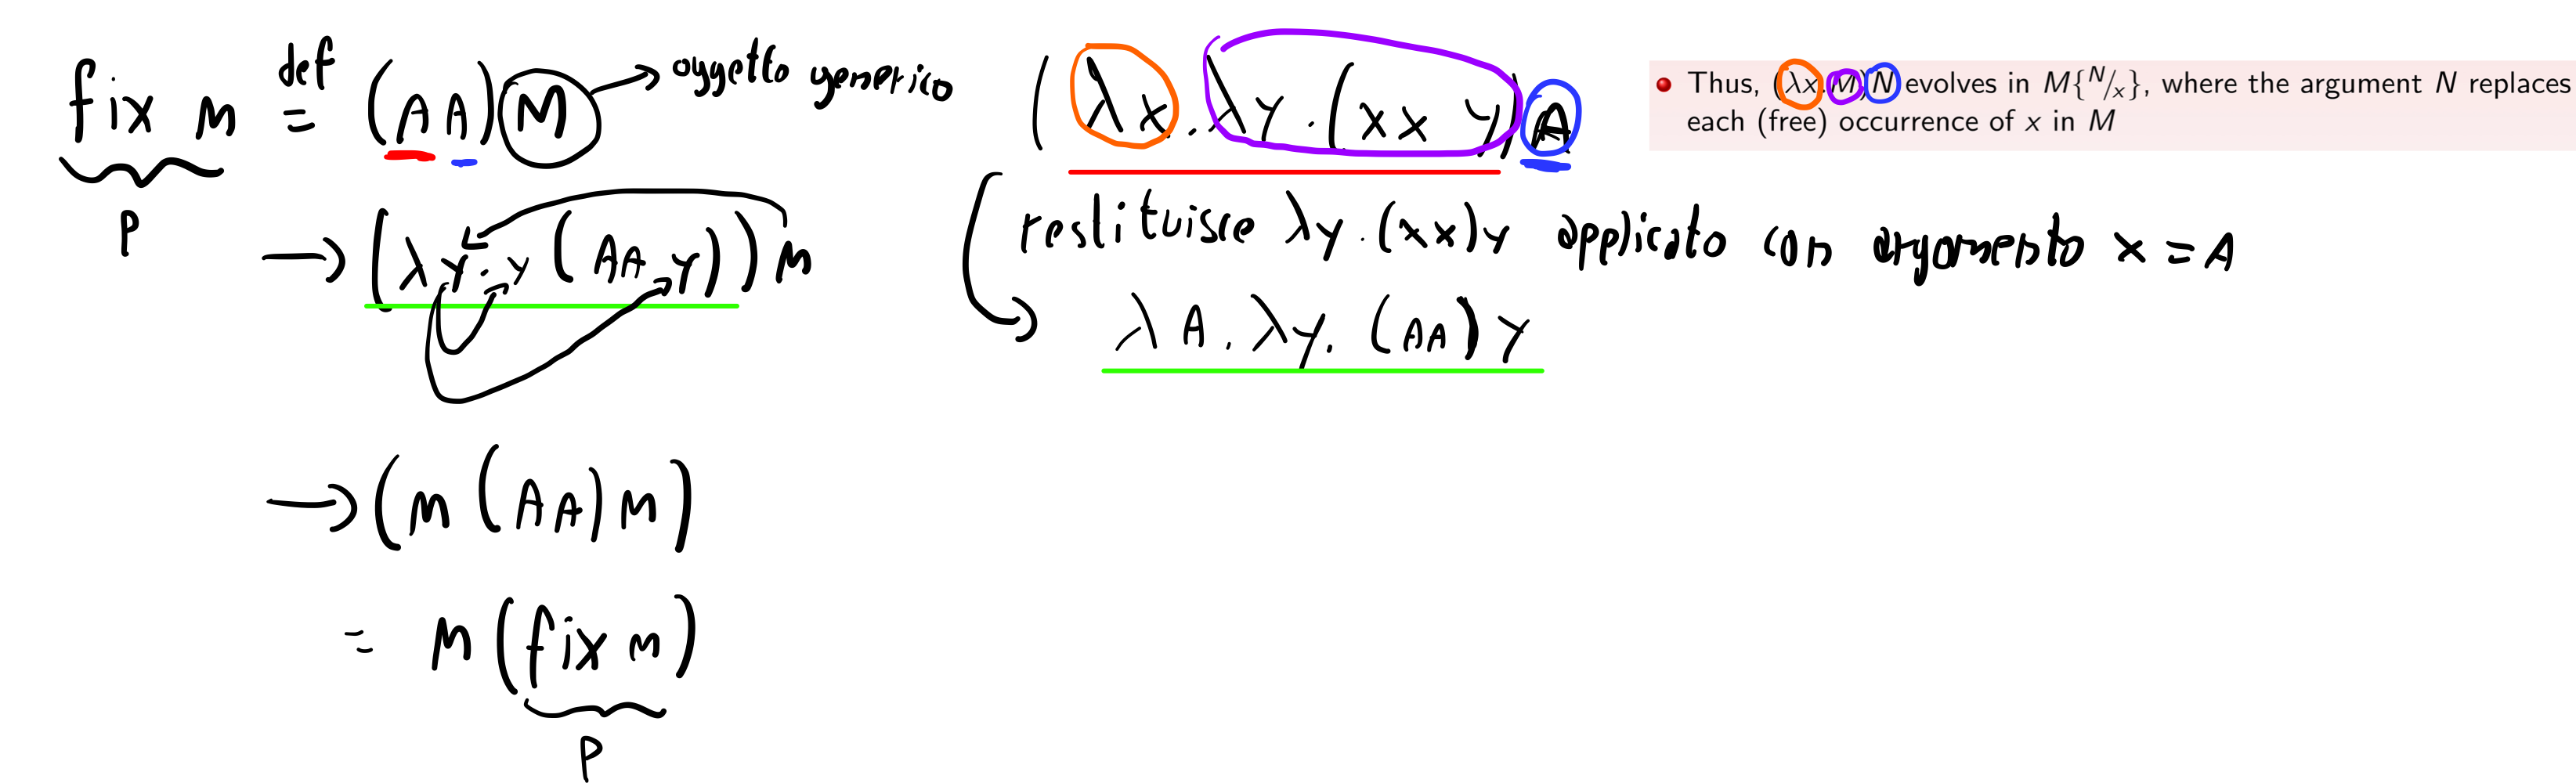 fix M def = (A A) M → oggetto generico
P
→ (λ y . y (A A y)) M
→ (M (A A) M)
= M (fix M)
P
(λ x . λ y . (x x y) A
restituisce λ y . (x x) y applicato con argomento x = A
λ A . λ y . (A A) y
Thus, (λx.M)N evolves in M{N/x}, where the argument N replaces
each (free) occurrence of x in M